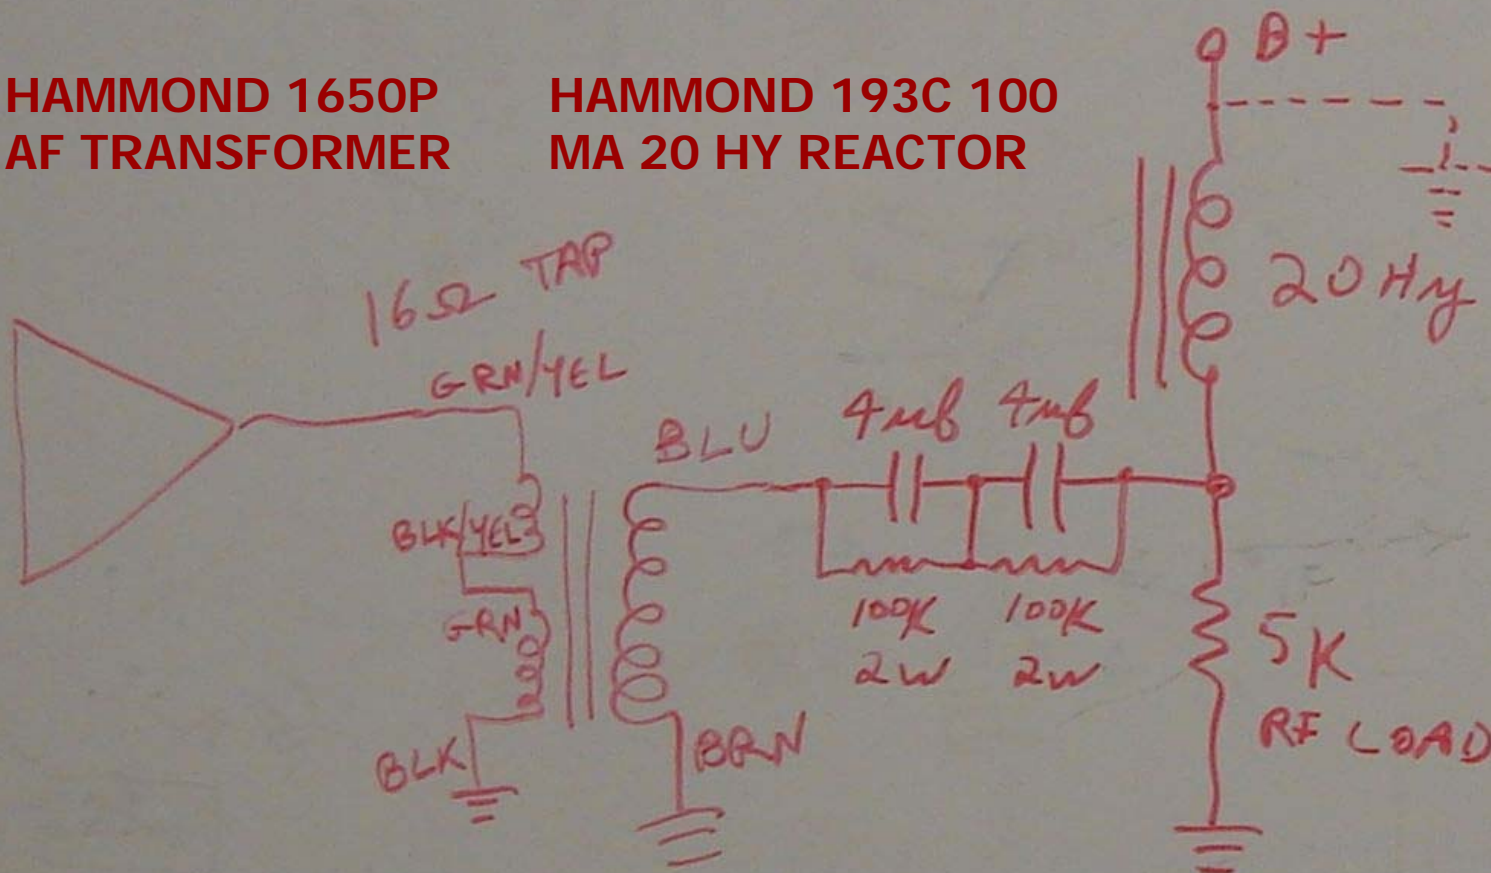 HAMMOND 1650P
AF TRANSFORMER
HAMMOND 193C 100
MA 20 HY REACTOR
B+
20 Hy
16Ω TAP
GRN/YEL
BLK/YEL
GRN
BLK
BLU
BRN
4mf 4mf
100K 100K
2W 2W
5K
RF LOAD